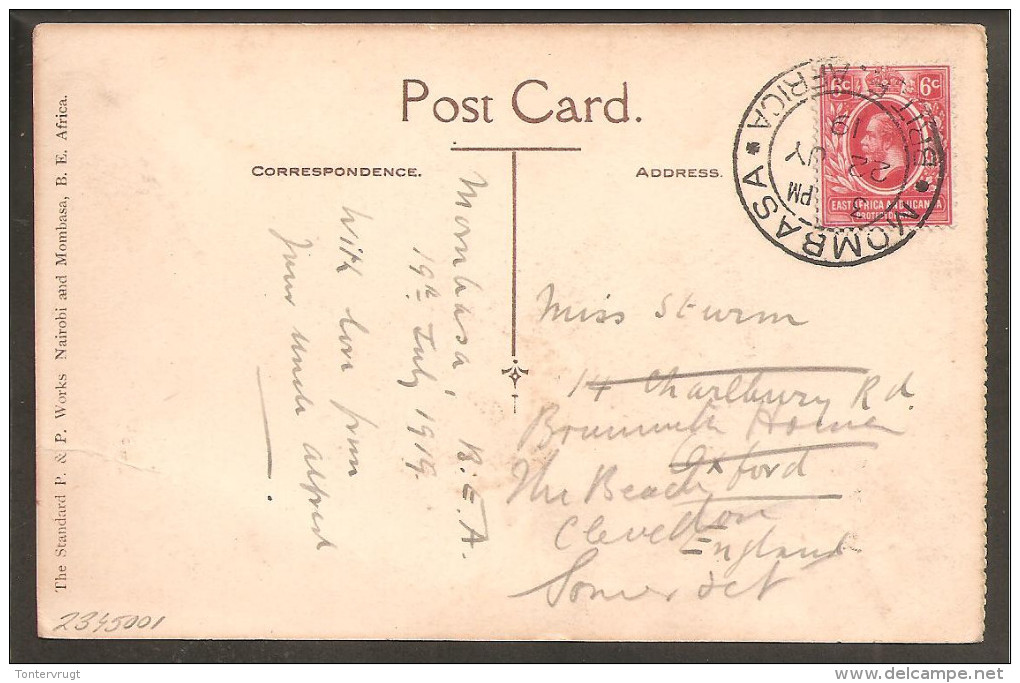 Post Card.
CORRESPONDENCE.
ADDRESS.
Mombasa, B.E.A.
19th July 1919.
With love from
your uncle Alfred
Miss Sturm
14 Charlbury Rd.
Oxford
England
The Beach
Clevedon
Somerset
6c 6c
EAST AFRICA AND UGANDA
PROTECTORATES
MOMBASA
BRIT. E. AFRICA
3 PM
22 JY
19
The Standard P. & P. Works Nairobi and Mombasa, B. E. Africa.
2345001
Tontervrugt
www.delcampe.net